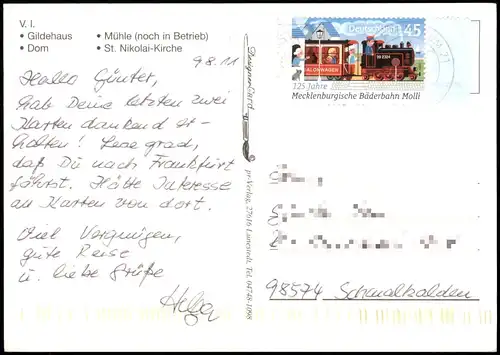 V. l.
• Gildehaus • Mühle (noch in Betrieb)
• Dom • St. Nikolai-Kirche
9.8.11
Hallo Günter,
hab Deine letzten zwei
Karten dankend er-
halten! Lese grad,
daß Du nach Frankfurt
fährst. Hätte Interesse
an Karten von dort.
Viel Vergnügen,
gute Reise
u. liebe Grüße
Helga
DesignerCard
pr-Verlag, 27616 Lunestedt, Tel. 04748-1898
Deutschland 45
SALONWAGEN
125 Jahre
Mecklenburgische Bäderbahn Molli
98574 Schmalkalden